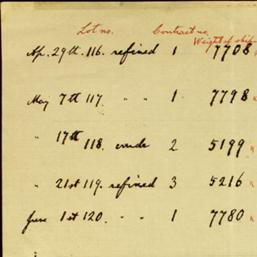 Lot no. Contract no.
Weight of ship
Ap. 29th. 116. refined 1 7708 "
May 7th 117. " " 1 7798 "
" 17th 118. crude 2 5199 "
" 21st 119. refined 3 5216 "
June 1st 120. " " 1 7780 "